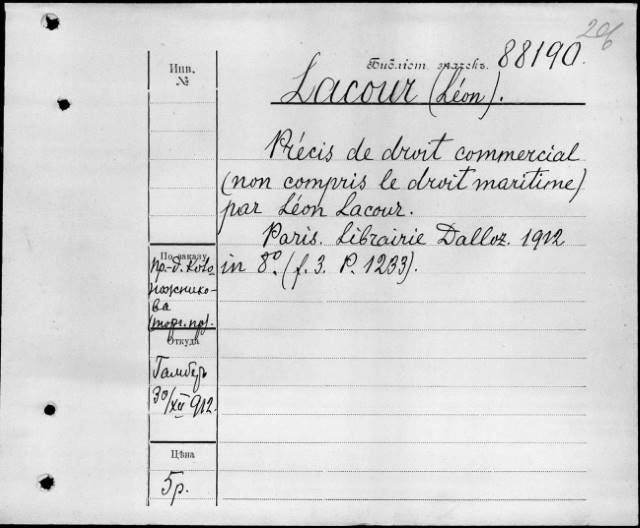 206
Инв.
№
Библіот. значекъ. 88190.
Lacour (Léon).
Précis de droit commercial
(non compris le droit maritime)
par Léon Lacour.
Paris. Librairie Dalloz. 1912
in 8º. (f. 3. P. 1233).
По заказу
пр-д.
ва
(торг. пр).
Откуда
30/XII 912.
Цѣна
5 р.